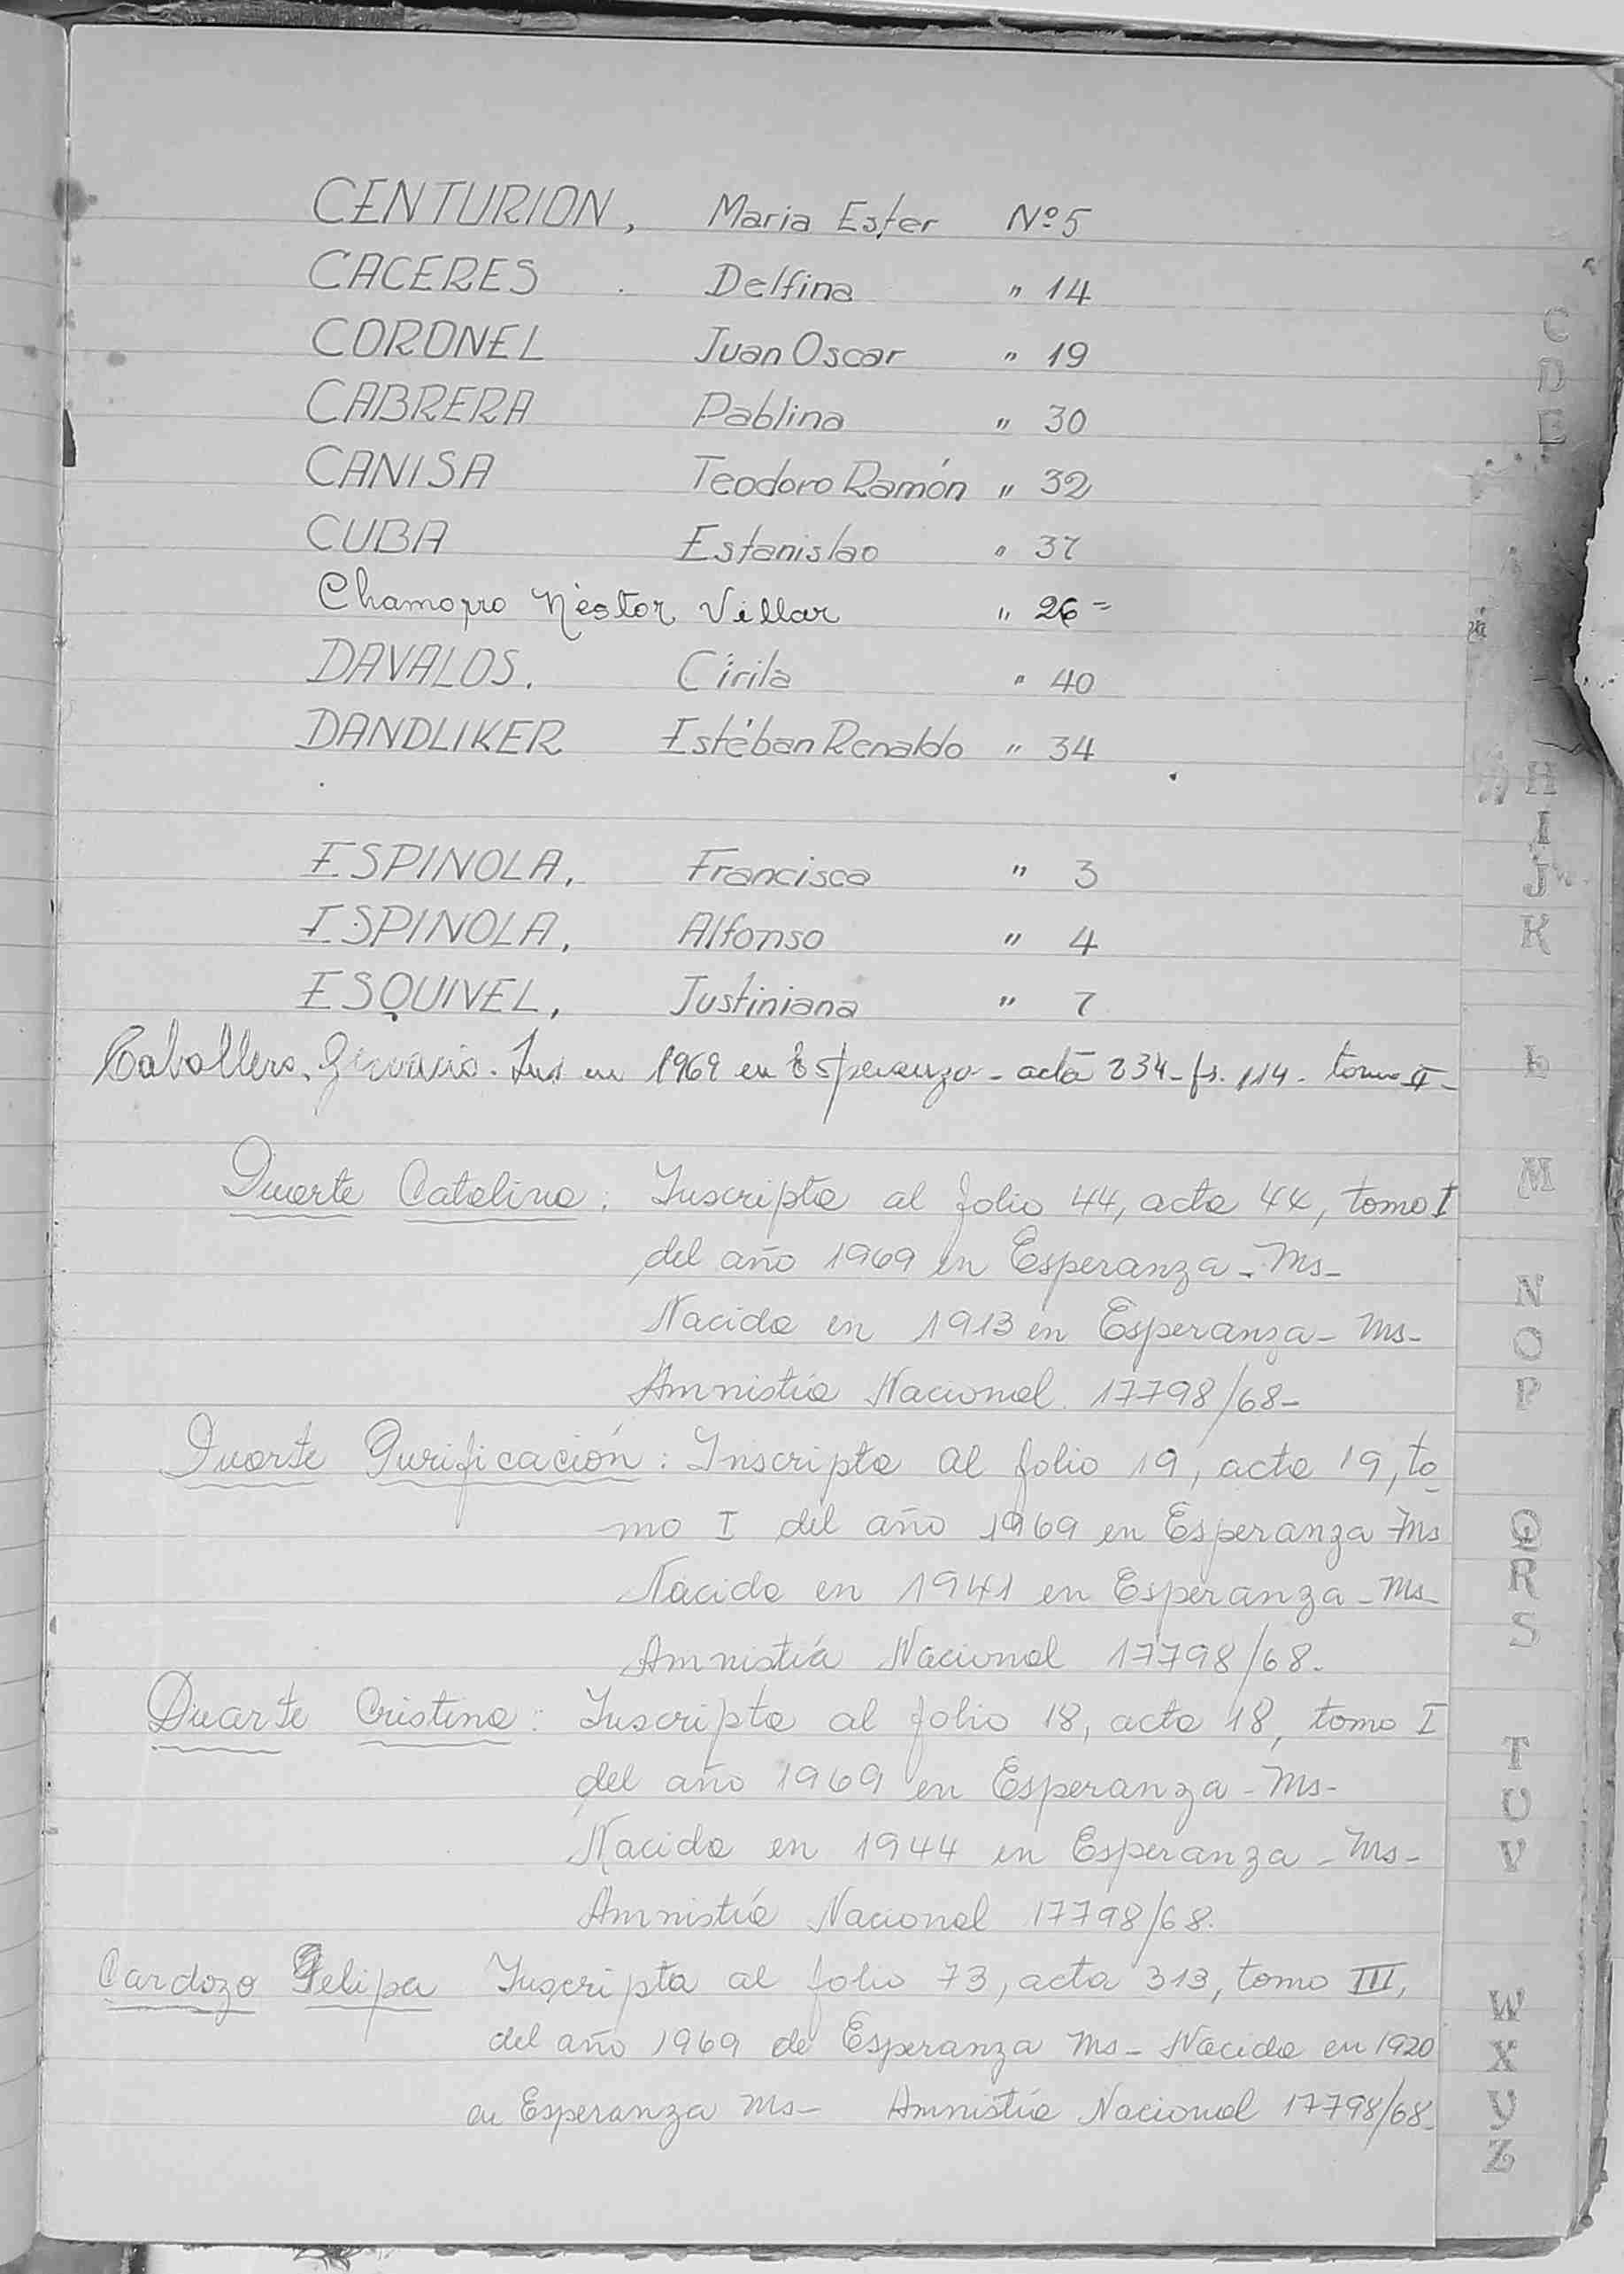 CENTURION, Maria Ester Nº 5
CACERES Delfina " 14
CORONEL Juan Oscar " 19
CABRERA Pablina " 30
CANISA Teodoro Ramón " 32
CUBA Estanislao " 37
Chamorro Néstor Villar " 26=
DAVALOS. Cirila " 40
DANDLIKER Estéban Renaldo " 34
ESPINOLA, Francisca " 3
ESPINOLA, Alfonso " 4
ESQUIVEL, Justiniana " 7
Caballero, Ins en 1969 en Esperanza - acta 234 - fs. 114 - tomo II -
Duarte Catalina: Inscripta al folio 44, acta 44, tomo I
del año 1969 en Esperanza - Ms -
Nacida en 1913 en Esperanza - Ms -
Amnistía Nacional 17798/68 -
Duarte Purificación: Inscripta al folio 19, acta 19, to
mo I del año 1969 en Esperanza - Ms
Nacida en 1941 en Esperanza - Ms -
Amnistía Nacional 17798/68.
Duarte Cristina: Inscripta al folio 18, acta 18, tomo I
del año 1969 en Esperanza - Ms -
Nacida en 1944 en Esperanza - Ms -
Amnistía Nacional 17798/68.
Cardozo Felipa Inscripta al folio 73, acta 313, tomo III,
del año 1969 de Esperanza Ms - Nacida en 1920
en Esperanza Ms - Amnistía Nacional 17798/68 -
C
D
E
H
I
J
K
L
M
N
O
P
Q
R
S
T
U
V
W
X
Y
Z